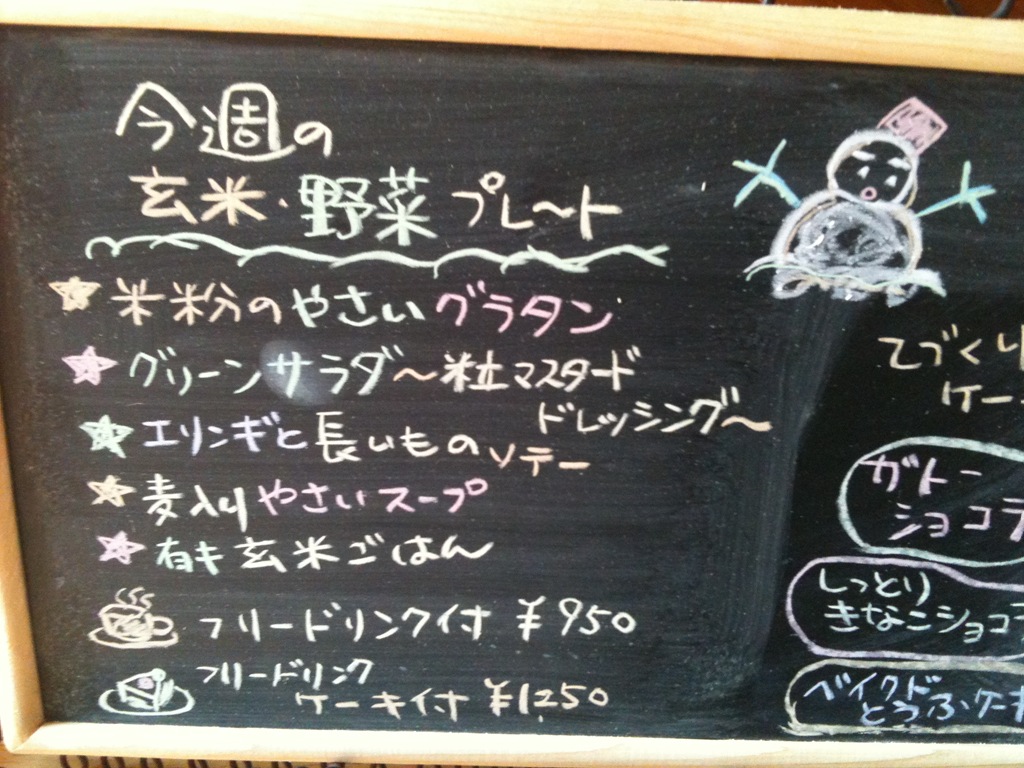 今週の
玄米・野菜プレート
米粉のやさいグラタン
グリーンサラダ〜粒マスタード
ドレッシング〜
エリンギと長いものソテー
麦入りやさいスープ
有キ玄米ごはん
フリードリンク付 ¥950
フリードリンク
ケーキ付 ¥1250
てづくり
ケー
ガトー
ショコラ
しっとり
きなこショコラ
ベイクド
とうふケーキ